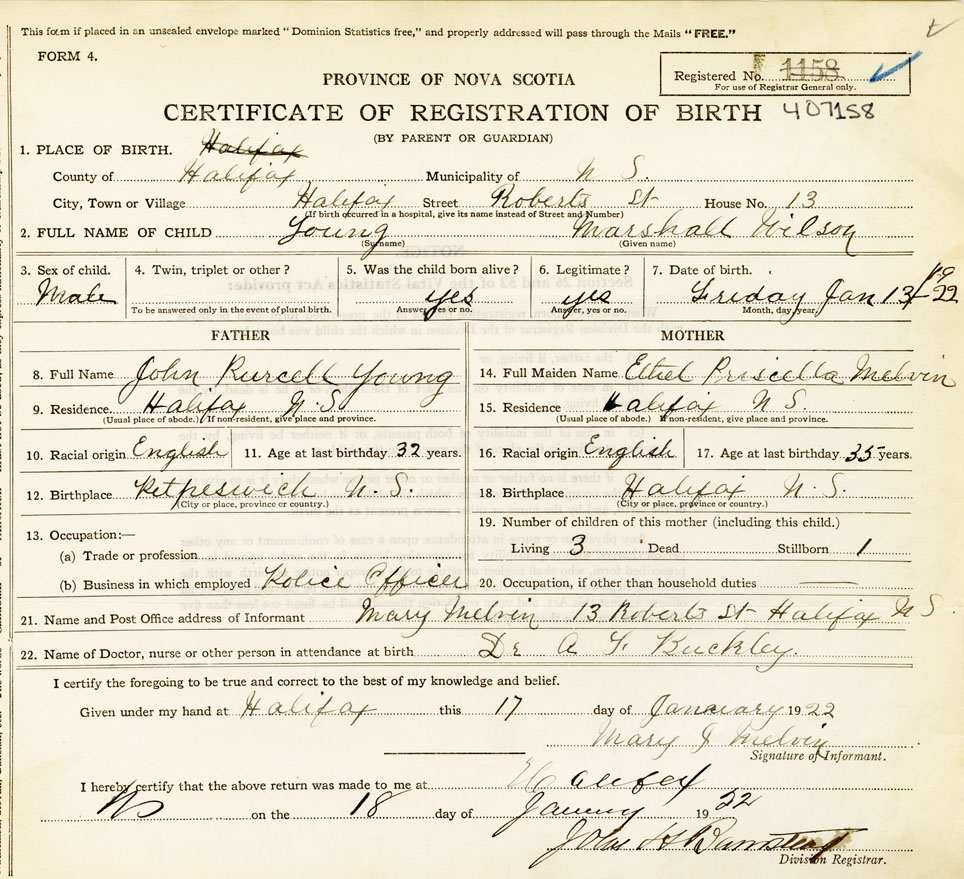 This form if placed in an unsealed envelope marked "Dominion Statistics free," and properly addressed will pass through the Mails "FREE."
FORM 4.
PROVINCE OF NOVA SCOTIA
Registered No. 1158
For use of Registrar General only.
CERTIFICATE OF REGISTRATION OF BIRTH 407158
(BY PARENT OR GUARDIAN)
1. PLACE OF BIRTH. Halifax
County of Halifax Municipality of N S.
City, Town or Village Halifax Street Roberts St House No. 13
(If birth occurred in a hospital, give its name instead of Street and Number)
2. FULL NAME OF CHILD Young Marshall Wilson
(Surname) (Given name)
3. Sex of child. 4. Twin, triplet or other? 5. Was the child born alive? 6. Legitimate? 7. Date of birth.
Male yes yes Friday Jan 13 22
To be answered only in the event of plural birth. Answer, yes or no. Answer, yes or no. Month, day, year.
FATHER MOTHER
8. Full Name John Purcell Young 14. Full Maiden Name Ethel Priscilla Melvin
9. Residence. Halifax N.S. 15. Residence Halifax N S.
(Usual place of abode.) If non-resident, give place and province. (Usual place of abode.) If non-resident, give place and province.
10. Racial origin English 11. Age at last birthday 32 years. 16. Racial origin English 17. Age at last birthday 35 years.
12. Birthplace Petpeswick N.S. 18. Birthplace Halifax N.S.
(City or place, province or country.) (City or place, province or country.)
19. Number of children of this mother (including this child.)
13. Occupation:—
(a) Trade or profession Living 3 Dead Stillborn 1
(b) Business in which employed Police Officer 20. Occupation, if other than household duties —
21. Name and Post Office address of Informant Mary Melvin 13 Roberts St Halifax N S
22. Name of Doctor, nurse or other person in attendance at birth Dr A F Buckley.
I certify the foregoing to be true and correct to the best of my knowledge and belief.
Given under my hand at Halifax this 17 day of January 1922
Mary J Melvin
Signature of Informant.
I hereby certify that the above return was made to me at Halifax
NS on the 18 day of January 1922
John H
Division Registrar.